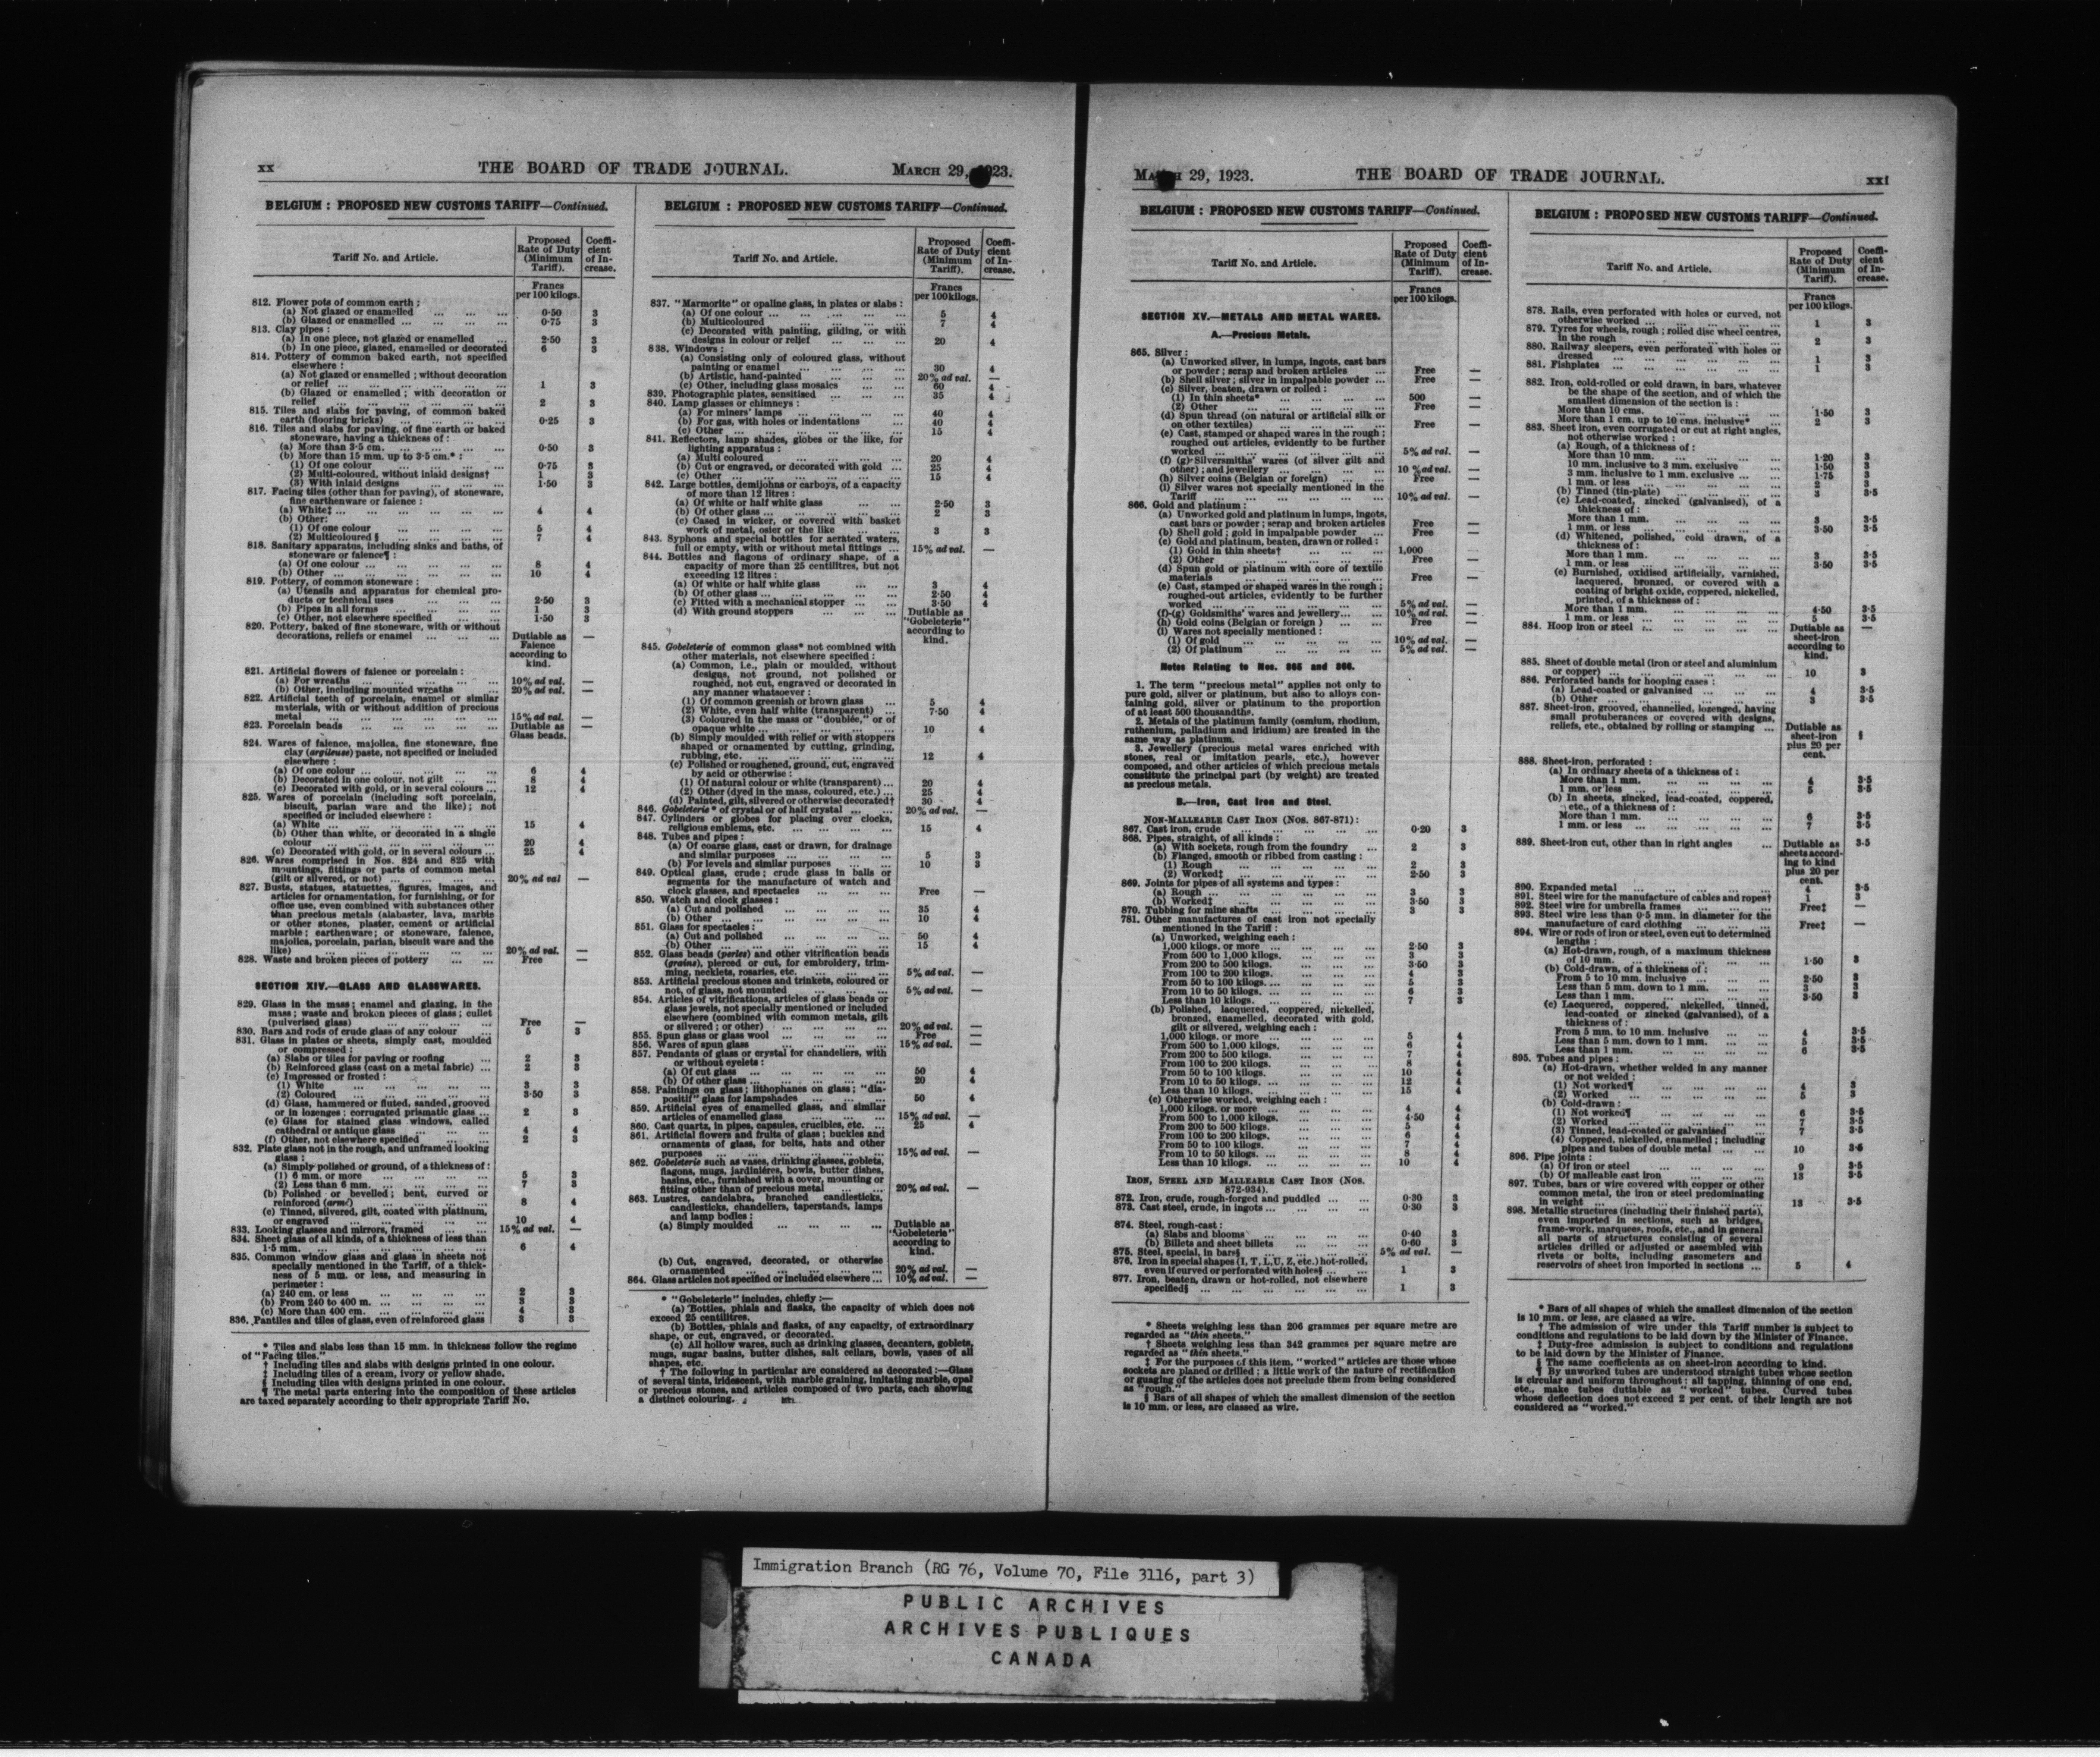 xx THE BOARD OF TRADE JOURNAL. MARCH 29, 1923.
BELGIUM : PROPOSED NEW CUSTOMS TARIFF—Continued.
Tariff No. and Article. Proposed Rate of Duty (Minimum Tariff). Coefficient of Increase.
Francs per 100 kilogs.
812. Flower pots of common earth :
(a) Not glazed or enamelled ... ... ... 0·50 3
(b) Glazed or enamelled ... ... ... ... 0·75 3
813. Clay pipes :
(a) In one piece, not glazed or enamelled ... 2·50 3
(b) In one piece, glazed, enamelled or decorated 6 3
814. Pottery of common baked earth, not specified
elsewhere :
(a) Not glazed or enamelled ; without decoration
or relief ... ... ... ... ... ... 1 3
(b) Glazed or enamelled ; with decoration or
relief ... ... ... ... ... ... 2 3
815. Tiles and slabs for paving, of common baked
earth (flooring bricks) ... ... ... ... 0·25 3
816. Tiles and slabs for paving, of fine earth or baked
stoneware, having a thickness of :
(a) More than 3·5 cm. ... ... ... ... 0·50 3
(b) More than 15 mm. up to 3·5 cm.* :
(1) Of one colour ... ... ... ... 0·75 3
(2) Multi-coloured, without inlaid designs† 1 3
(3) With inlaid designs ... ... ... 1·50 3
817. Facing tiles (other than for paving), of stoneware,
fine earthenware or faience :
(a) White‡ ... ... ... ... ... ... 4 4
(b) Other:
(1) Of one colour ... ... ... ... 5 4
(2) Multicoloured § ... ... ... ... 7 4
818. Sanitary apparatus, including sinks and baths, of
stoneware or faience¶ :
(a) Of one colour ... ... ... ... ... 8 4
(b) Other ... ... ... ... ... ... 10 4
819. Pottery, of common stoneware :
(a) Utensils and apparatus for chemical pro-
ducts or technical uses ... ... ... 2·50 3
(b) Pipes in all forms ... ... ... ... 1 3
(c) Other, not elsewhere specified ... ... 1·50 3
820. Pottery, baked of fine stoneware, with or without
decorations, reliefs or enamel ... ... ... Dutiable as Faience according to kind. —
821. Artificial flowers of faience or porcelain :
(a) For wreaths ... ... ... ... ... 10% ad val. —
(b) Other, including mounted wreaths ... 20% ad val. —
822. Artificial teeth of porcelain, enamel or similar
materials, with or without addition of precious
metal ... ... ... ... ... ... 15% ad val. —
823. Porcelain beads ... ... ... ... ... Dutiable as Glass beads. —
824. Wares of faience, majolica, fine stoneware, fine
clay (argileuse) paste, not specified or included
elsewhere :
(a) Of one colour ... ... ... ... ... 6 4
(b) Decorated in one colour, not gilt ... ... 8 4
(c) Decorated with gold, or in several colours ... 12 4
825. Wares of porcelain (including soft porcelain,
biscuit, parian ware and the like) ; not
specified or included elsewhere :
(a) White ... ... ... ... ... ... 15 4
(b) Other than white, or decorated in a single
colour ... ... ... ... ... ... 20 4
(c) Decorated with gold, or in several colours ... 25 4
826. Wares comprised in Nos. 824 and 825 with
mountings, fittings or parts of common metal
(gilt or silvered, or not) ... ... ... ... 20% ad val —
827. Busts, statues, statuettes, figures, images, and
articles for ornamentation, for furnishing, or for
office use, even combined with substances other
than precious metals (alabaster, lava, marble
or other stones, plaster, cement or artificial
marble ; earthenware; or stoneware, faience,
majolica, porcelain, parian, biscuit ware and the
like) ... ... ... ... ... ... 20% ad val. —
828. Waste and broken pieces of pottery ... ... Free —
SECTION XIV.—GLASS AND GLASSWARES.
829. Glass in the mass; enamel and glazing, in the
mass ; waste and broken pieces of glass ; cullet
(pulverised glass) ... ... ... ... Free —
830. Bars and rods of crude glass of any colour ... 5 3
831. Glass in plates or sheets, simply cast, moulded
or compressed :
(a) Slabs or tiles for paving or roofing ... 2 3
(b) Reinforced glass (cast on a metal fabric) ... 2 3
(c) Impressed or frosted :
(1) White ... ... ... ... ... 3 3
(2) Coloured ... ... ... ... ... 3·50 3
(d) Glass, hammered or fluted, sanded, grooved
or in lozenges ; corrugated prismatic glass ... 2 3
(e) Glass for stained glass windows, called
cathedral or antique glass ... ... ... 4 4
(f) Other, not elsewhere specified ... ... 2 3
832. Plate glass not in the rough, and unframed looking
glass :
(a) Simply polished or ground, of a thickness of :
(1) 6 mm. or more ... ... ... ... 5 3
(2) Less than 6 mm. ... ... ... ... 7 3
(b) Polished or bevelled ; bent, curved or
reinforced (armé) ... ... ... ... 8 4
(c) Tinned, silvered, gilt, coated with platinum,
or engraved ... ... ... ... ... 10 4
833. Looking glasses and mirrors, framed ... ... 15% ad val. —
834. Sheet glass of all kinds, of a thickness of less than
1·5 mm. ... ... ... ... ... ... 6 4
835. Common window glass and glass in sheets not
specially mentioned in the Tariff, of a thick-
ness of 5 mm. or less, and measuring in
perimeter :
(a) 240 cm. or less ... ... ... ... 2 3
(b) From 240 to 400 m. ... ... ... ... 3 3
(c) More than 400 cm. ... ... ... ... 4 3
836. Pantiles and tiles of glass, even of reinforced glass 3 3
* Tiles and slabs less than 15 mm. in thickness follow the regime
of "Facing tiles."
† Including tiles and slabs with designs printed in one colour.
‡ Including tiles of a cream, ivory or yellow shade.
§ Including tiles with designs printed in one colour.
¶ The metal parts entering into the composition of these articles
are taxed separately according to their appropriate Tariff No.
BELGIUM : PROPOSED NEW CUSTOMS TARIFF—Continued.
Tariff No. and Article. Proposed Rate of Duty (Minimum Tariff). Coefficient of Increase.
Francs per 100 kilogs.
837. "Marmorite" or opaline glass, in plates or slabs :
(a) Of one colour ... ... ... ... ... 5 4
(b) Multicoloured ... ... ... ... ... 7 4
(c) Decorated with painting, gilding, or with
designs in colour or relief ... ... ... 20 4
838. Windows :
(a) Consisting only of coloured glass, without
painting or enamel ... ... ... ... 30 4
(b) Artistic, hand-painted ... ... ... 20% ad val. —
(c) Other, including glass mosaics ... ... 60 4
839. Photographic plates, sensitised ... ... ... 35 4
840. Lamp glasses or chimneys :
(a) For miners' lamps ... ... ... ... 40 4
(b) For gas, with holes or indentations ... 40 4
(c) Other ... ... ... ... ... ... 15 4
841. Reflectors, lamp shades, globes or the like, for
lighting apparatus :
(a) Multi coloured ... ... ... ... ... 20 4
(b) Cut or engraved, or decorated with gold ... 25 4
(c) Other ... ... ... ... ... ... 15 4
842. Large bottles, demijohns or carboys, of a capacity
of more than 12 litres :
(a) Of white or half white glass ... ... 2·50 3
(b) Of other glass ... ... ... ... ... 2 3
(c) Cased in wicker, or covered with basket
work of metal, osier or the like ... ... 3 3
843. Syphons and special bottles for aerated waters,
full or empty, with or without metal fittings ... 15% ad val. —
844. Bottles and flagons of ordinary shape, of a
capacity of more than 25 centilitres, but not
exceeding 12 litres :
(a) Of white or half white glass ... ... 3 4
(b) Of other glass ... ... ... ... ... 2·50 4
(c) Fitted with a mechanical stopper ... ... 3·50 4
(d) With ground stoppers ... ... ... Dutiable as "Gobeleterie" according to kind.
845. Gobeleterie of common glass* not combined with
other materials, not elsewhere specified :
(a) Common, i.e., plain or moulded, without
designs, not ground, not polished or
roughed, not cut, engraved or decorated in
any manner whatsoever :
(1) Of common greenish or brown glass ... 5 4
(2) White, even half white (transparent) ... 7·50 4
(3) Coloured in the mass or "doublée," or of
opaque white ... ... ... ... ... 10 4
(b) Simply moulded with relief or with stoppers
shaped or ornamented by cutting, grinding,
rubbing, etc. ... ... ... ... ... 12 4
(c) Polished or roughened, ground, cut, engraved
by acid or otherwise :
(1) Of natural colour or white (transparent) ... 20 4
(2) Other (dyed in the mass, coloured, etc.) ... 25 4
(d) Painted, gilt, silvered or otherwise decorated† 30 4
846. Gobeleterie * of crystal or of half crystal ... ... 20% ad val. —
847. Cylinders or globes for placing over clocks,
religious emblems, etc. ... ... ... ... 15 4
848. Tubes and pipes :
(a) Of coarse glass, cast or drawn, for drainage
and similar purposes ... ... ... ... 5 3
(b) For levels and similar purposes ... ... 10 3
849. Optical glass, crude ; crude glass in balls or
segments for the manufacture of watch and
clock glasses, and spectacles ... ... ... Free —
850. Watch and clock glasses :
(a) Cut and polished ... ... ... ... 35 4
(b) Other ... ... ... ... ... ... 10 4
851. Glass for spectacles :
(a) Cut and polished ... ... ... ... 50 4
(b) Other ... ... ... ... ... ... 15 4
852. Glass beads (perles) and other vitrification beads
(grains), pierced or cut, for embroidery, trim-
ming, necklets, rosaries, etc. ... ... ... 5% ad val. —
853. Artificial precious stones and trinkets, coloured or
not, of glass, not mounted ... ... ... 5% ad val. —
854. Articles of vitrifications, articles of glass beads or
glass jewels, not specially mentioned or included
elsewhere (combined with common metals, gilt
or silvered ; or other) ... ... ... ... 20% ad val. —
855. Spun glass or glass wool ... ... ... ... Free —
856. Wares of spun glass ... ... ... ... 15% ad val. —
857. Pendants of glass or crystal for chandeliers, with
or without eyelets :
(a) Of cut glass ... ... ... ... ... 50 4
(b) Of other glass ... ... ... ... ... 20 4
858. Paintings on glass ; lithophanes on glass ; "dia-
positif" glass for lampshades ... ... ... 50 4
859. Artificial eyes of enamelled glass, and similar
articles of enamelled glass ... ... ... 15% ad val. —
860. Cast quartz, in pipes, capsules, crucibles, etc. ... 25 4
861. Artificial flowers and fruits of glass ; buckles and
ornaments of glass, for belts, hats and other
purposes ... ... ... ... ... ... 15% ad val. —
862. Gobeleterie such as vases, drinking glasses, goblets,
flagons, mugs, jardinières, bowls, butter dishes,
basins, etc., furnished with a cover, mounting or
fitting other than of precious metal ... ... 20% ad val. —
863. Lustres, candelabra, branched candlesticks,
candlesticks, chandeliers, taperstands, lamps
and lamp bodies :
(a) Simply moulded ... ... ... ... Dutiable as "Gobeleterie" according to kind.
(b) Cut, engraved, decorated, or otherwise
ornamented ... ... ... ... ... 20% ad val. —
864. Glass articles not specified or included elsewhere ... 10% ad val. —
* "Gobeleterie" includes, chiefly :—
(a) Bottles, phials and flasks, the capacity of which does not
exceed 25 centilitres.
(b) Bottles, phials and flasks, of any capacity, of extraordinary
shape, or cut, engraved, or decorated.
(c) All hollow wares, such as drinking glasses, decanters, goblets,
mugs, sugar basins, butter dishes, salt cellars, bowls, vases of all
shapes, etc.
† The following in particular are considered as decorated :—Glass
of several tints, iridescent, with marble graining, imitating marble, opal
or precious stones, and articles composed of two parts, each showing
a distinct colouring.
29, 1923. THE BOARD OF TRADE JOURNAL. xxi
BELGIUM : PROPOSED NEW CUSTOMS TARIFF—Continued.
Tariff No. and Article. Proposed Rate of Duty (Minimum Tariff). Coefficient of Increase.
Francs per 100 kilogs.
SECTION XV.—METALS AND METAL WARES.
A.—Precious Metals.
865. Silver :
(a) Unworked silver, in lumps, ingots, cast bars
or powder ; scrap and broken articles ... Free —
(b) Shell silver ; silver in impalpable powder ... Free —
(c) Silver, beaten, drawn or rolled :
(1) In thin sheets* ... ... ... ... 500 —
(2) Other ... ... ... ... ... Free —
(d) Spun thread (on natural or artificial silk or
on other textiles) ... ... ... ... Free —
(e) Cast, stamped or shaped wares in the rough ;
roughed out articles, evidently to be further
worked ... ... ... ... ... ... 5% ad val. —
(f) (g) Silversmiths' wares (of silver gilt and
other) ; and jewellery ... ... ... ... 10 % ad val. —
(h) Silver coins (Belgian or foreign) ... ... Free —
(i) Silver wares not specially mentioned in the
Tariff ... ... ... ... ... ... 10% ad val. —
866. Gold and platinum :
(a) Unworked gold and platinum in lumps, ingots,
cast bars or powder ; scrap and broken articles Free —
(b) Shell gold ; gold in impalpable powder ... Free —
(c) Gold and platinum, beaten, drawn or rolled :
(1) Gold in thin sheets† ... ... ... 1,000 —
(2) Other ... ... ... ... ... Free —
(d) Spun gold or platinum with core of textile
materials ... ... ... ... ... Free —
(e) Cast, stamped or shaped wares in the rough ;
roughed-out articles, evidently to be further
worked ... ... ... ... ... ... 5% ad val. —
(f)-(g) Goldsmiths' wares and jewellery ... ... 10% ad val. —
(h) Gold coins (Belgian or foreign ) ... ... Free —
(i) Wares not specially mentioned :
(1) Of gold ... ... ... ... ... 10% ad val. —
(2) Of platinum ... ... ... ... ... 5% ad val. —
Notes Relating to Nos. 865 and 866.
1. The term "precious metal" applies not only to
pure gold, silver or platinum, but also to alloys con-
taining gold, silver or platinum to the proportion
of at least 500 thousandths.
2. Metals of the platinum family (osmium, rhodium,
ruthenium, palladium and iridium) are treated in the
same way as platinum.
3. Jewellery (precious metal wares enriched with
stones, real or imitation pearls, etc.), however
composed, and other articles of which precious metals
constitute the principal part (by weight) are treated
as precious metals.
B.—Iron, Cast Iron and Steel.
NON-MALLEABLE CAST IRON (NOS. 867-871) :
867. Cast iron, crude ... ... ... ... ... 0·20 3
868. Pipes, straight, of all kinds :
(a) With sockets, rough from the foundry ... 2 3
(b) Flanged, smooth or ribbed from casting :
(1) Rough ... ... ... ... ... 2 3
(2) Worked‡ ... ... ... ... ... 2·50 3
869. Joints for pipes of all systems and types :
(a) Rough ... ... ... ... ... ... 3 3
(b) Worked‡ ... ... ... ... ... 3·50 3
870. Tubbing for mine shafts ... ... ... ... 3 3
781. Other manufactures of cast iron not specially
mentioned in the Tariff :
(a) Unworked, weighing each :
1,000 kilogs. or more ... ... ... ... 2·50 3
From 500 to 1,000 kilogs. ... ... ... 3 3
From 200 to 500 kilogs. ... ... ... 3·50 3
From 100 to 200 kilogs. ... ... ... 4 3
From 50 to 100 kilogs. ... ... ... ... 5 3
From 10 to 50 kilogs. ... ... ... ... 6 3
Less than 10 kilogs. ... ... ... ... 7 3
(b) Polished, lacquered, coppered, nickelled,
bronzed, enamelled, decorated with gold,
gilt or silvered, weighing each :
1,000 kilogs. or more ... ... ... ... 5 4
From 500 to 1,000 kilogs. ... ... ... 6 4
From 200 to 500 kilogs. ... ... ... 7 4
From 100 to 200 kilogs. ... ... ... 8 4
From 50 to 100 kilogs. ... ... ... ... 10 4
From 10 to 50 kilogs. ... ... ... ... 12 4
Less than 10 kilogs. ... ... ... ... 15 4
(c) Otherwise worked, weighing each :
1,000 kilogs. or more ... ... ... ... 4 4
From 500 to 1,000 kilogs. ... ... ... 4·50 4
From 200 to 500 kilogs. ... ... ... 5 4
From 100 to 200 kilogs. ... ... ... 6 4
From 50 to 100 kilogs. ... ... ... 7 4
From 10 to 50 kilogs. ... ... ... ... 8 4
Less than 10 kilogs. ... ... ... ... 10 4
IRON, STEEL AND MALLEABLE CAST IRON (NOS.
872-934).
872. Iron, crude, rough-forged and puddled ... ... 0·30 3
873. Cast steel, crude, in ingots ... ... ... ... 0·30 3
874. Steel, rough-cast :
(a) Slabs and blooms ... ... ... ... 0·40 3
(b) Billets and sheet billets ... ... ... 0·60 3
875. Steel, special, in bars§ ... ... ... ... 5% ad val. —
876. Iron in special shapes (I, T, L, U, Z, etc.) hot-rolled,
even if curved or perforated with holes§ ... ... 1 3
877. Iron, beaten, drawn or hot-rolled, not elsewhere
specified§ ... ... ... ... ... ... 1 3
* Sheets weighing less than 206 grammes per square metre are
regarded as "thin sheets."
† Sheets weighing less than 342 grammes per square metre are
regarded as "thin sheets."
‡ For the purposes of this item, "worked" articles are those whose
sockets are planed or drilled ; a little work of the nature of rectification
or guaging of the articles does not preclude them from being considered
as "rough."
§ Bars of all shapes of which the smallest dimension of the section
is 10 mm. or less, are classed as wire.
BELGIUM : PROPOSED NEW CUSTOMS TARIFF—Continued.
Tariff No. and Article. Proposed Rate of Duty (Minimum Tariff). Coefficient of Increase.
Francs per 100 kilogs.
878. Rails, even perforated with holes or curved, not
otherwise worked ... ... ... ... ... 1 3
879. Tyres for wheels, rough ; rolled disc wheel centres,
in the rough ... ... ... ... ... 2 3
880. Railway sleepers, even perforated with holes or
dressed ... ... ... ... ... ... 1 3
881. Fishplates ... ... ... ... ... ... 1 3
882. Iron, cold-rolled or cold drawn, in bars, whatever
be the shape of the section, and of which the
smallest dimension of the section is :
More than 10 cms. ... ... ... ... 1·50 3
More than 1 cm. up to 10 cms. inclusive* ... 2 3
883. Sheet iron, even corrugated or cut at right angles,
not otherwise worked :
(a) Rough, of a thickness of :
More than 10 mm. ... ... ... ... 1·20 3
10 mm. inclusive to 3 mm. exclusive ... 1·50 3
3 mm. inclusive to 1 mm. exclusive ... ... 1·75 3
1 mm. or less ... ... ... ... ... 2 3
(b) Tinned (tin-plate) ... ... ... ... 3 3·5
(c) Lead-coated, zincked (galvanised), of a
thickness of :
More than 1 mm. ... ... ... ... 3 3·5
1 mm. or less ... ... ... ... ... 3·50 3·5
(d) Whitened, polished, cold drawn, of a
thickness of :
More than 1 mm. ... ... ... ... 3 3·5
1 mm. or less ... ... ... ... ... 3·50 3·5
(e) Burnished, oxidised artificially, varnished,
lacquered, bronzed, or covered with a
coating of bright oxide, coppered, nickelled,
printed, of a thickness of :
More than 1 mm. ... ... ... ... 4·50 3·5
1 mm. or less ... ... ... ... ... 5 3·5
884. Hoop iron or steel ... ... ... ... ... Dutiable as sheet-iron according to kind. —
885. Sheet of double metal (iron or steel and aluminium
or copper) ... ... ... ... ... ... 10 3
886. Perforated bands for hooping cases :
(a) Lead-coated or galvanised ... ... ... 4 3·5
(b) Other ... ... ... ... ... ... 3 3·5
887. Sheet-iron, grooved, channelled, lozenged, having
small protuberances or covered with designs,
reliefs, etc., obtained by rolling or stamping ... Dutiable as sheet-iron plus 20 per cent. §
888. Sheet-iron, perforated :
(a) In ordinary sheets of a thickness of :
More than 1 mm. ... ... ... ... 4 3·5
1 mm. or less ... ... ... ... ... 5 3·5
(b) In sheets, zincked, lead-coated, coppered,
etc., of a thickness of :
More than 1 mm. ... ... ... ... 6 3·5
1 mm. or less ... ... ... ... ... 7 3·5
889. Sheet-iron cut, other than in right angles ... Dutiable as sheets according to kind plus 20 per cent. 3·5
890. Expanded metal ... ... ... ... ... 4 3·5
891. Steel wire for the manufacture of cables and ropes† 1 3
892. Steel wire for umbrella frames ... ... ... Free‡ —
893. Steel wire less than 0·5 mm. in diameter for the
manufacture of card clothing ... ... ... Free‡ —
894. Wire or rods of iron or steel, even cut to determined
lengths :
(a) Hot-drawn, rough, of a maximum thickness
of 10 mm. ... ... ... ... ... 1·50 3
(b) Cold-drawn, of a thickness of :
From 5 to 10 mm. inclusive ... ... ... 2·50 3
Less than 5 mm. down to 1 mm. ... ... 3 3
Less than 1 mm. ... ... ... ... 3·50 3
(c) Lacquered, coppered, nickelled, tinned,
lead-coated or zincked (galvanised), of a
thickness of :
From 5 mm. to 10 mm. inclusive ... ... 4 3·5
Less than 5 mm. down to 1 mm. ... ... 5 3·5
Less than 1 mm. ... ... ... ... 6 3·5
895. Tubes and pipes :
(a) Hot-drawn, whether welded in any manner
or not welded :
(1) Not worked¶ ... ... ... ... 4 3
(2) Worked ... ... ... ... ... 5 3
(b) Cold-drawn :
(1) Not worked¶ ... ... ... ... 6 3·5
(2) Worked ... ... ... ... ... 7 3·5
(3) Tinned, lead-coated or galvanised ... 7 3·5
(4) Coppered, nickelled, enamelled ; including
pipes and tubes of double metal ... ... 10 3·5
896. Pipe joints :
(a) Of iron or steel ... ... ... ... 9 3·5
(b) Of malleable cast iron ... ... ... 13 3·5
897. Tubes, bars or wire covered with copper or other
common metal, the iron or steel predominating
in weight ... ... ... ... ... ... 13 3·5
898. Metallic structures (including their finished parts),
even imported in sections, such as bridges,
frame-work, marquees, roofs, etc., and in general
all parts of structures consisting of several
articles drilled or adjusted or assembled with
rivets or bolts, including gasometers and
reservoirs of sheet iron imported in sections ... 5 4
* Bars of all shapes of which the smallest dimension of the section
is 10 mm. or less, are classed as wire.
† The admission of wire under this Tariff number is subject to
conditions and regulations to be laid down by the Minister of Finance.
‡ Duty-free admission is subject to conditions and regulations
to be laid down by the Minister of Finance.
§ The same coefficients as on sheet-iron according to kind.
¶ By unworked tubes are understood straight tubes whose section
is circular and uniform throughout ; all tapping, thinning of one end,
etc., make tubes dutiable as "worked" tubes. Curved tubes
whose deflection does not exceed 2 per cent. of their length are not
considered as "worked."
Immigration Branch (RG 76, Volume 70, File 3116, part 3)
PUBLIC ARCHIVES
ARCHIVES PUBLIQUES
CANADA